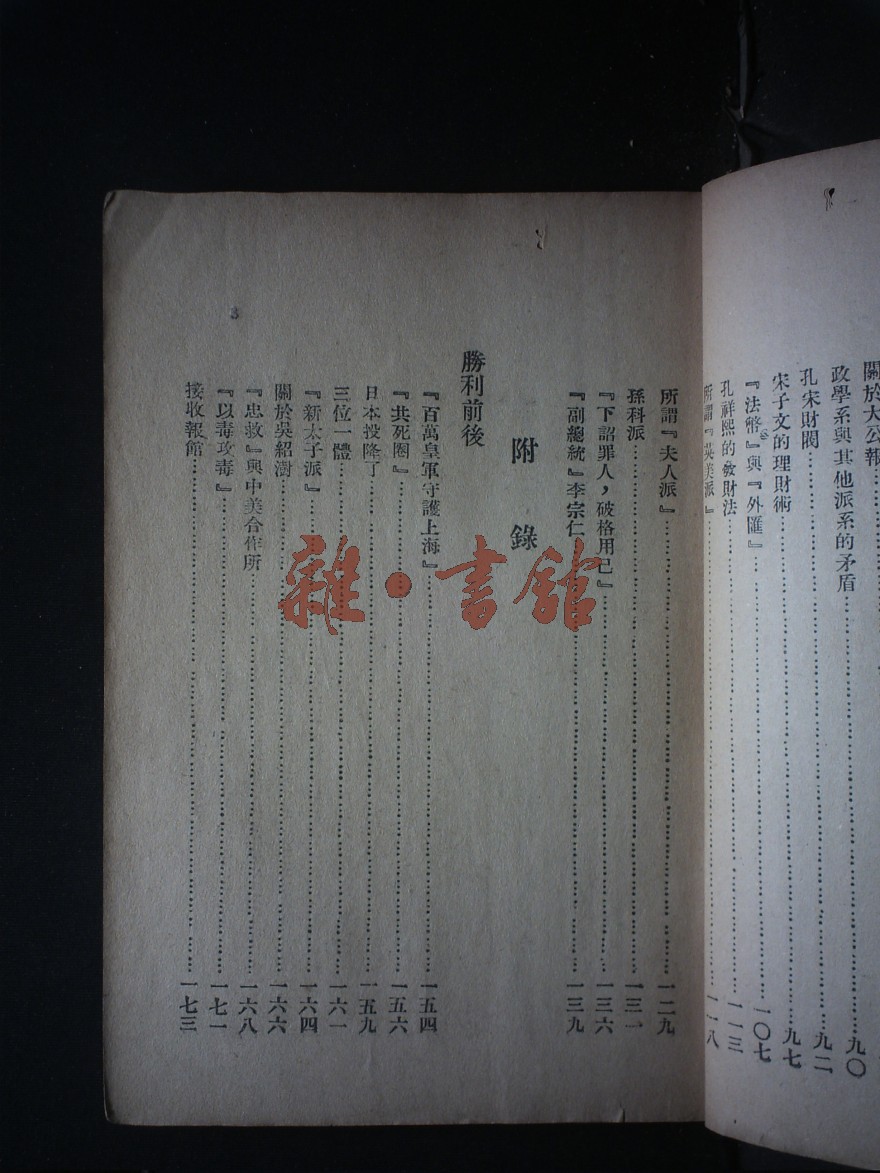 關於大公報
政學系與其他派系的矛盾……九〇
孔宋財閥……九二
宋子文的理財術……九七
『法幣』與『外匯』……一〇七
孔祥熙的發財法……一一三
所謂『英美派』……一一八
所謂『夫人派』……一二九
孫科派……一三一
『下詔罪人，破格用己』……一三六
『副總統』李宗仁……一三九
附錄
勝利前後
『百萬皇軍守護上海』……一五四
『共死圈』……一五六
日本投降了……一五九
三位一體……一六一
『新太子派』……一六四
關於吳紹澍……一六六
『忠救』與中美合作所……一六八
『以毒攻毒』……一七一
接收報館……一七三
3
雜·書館